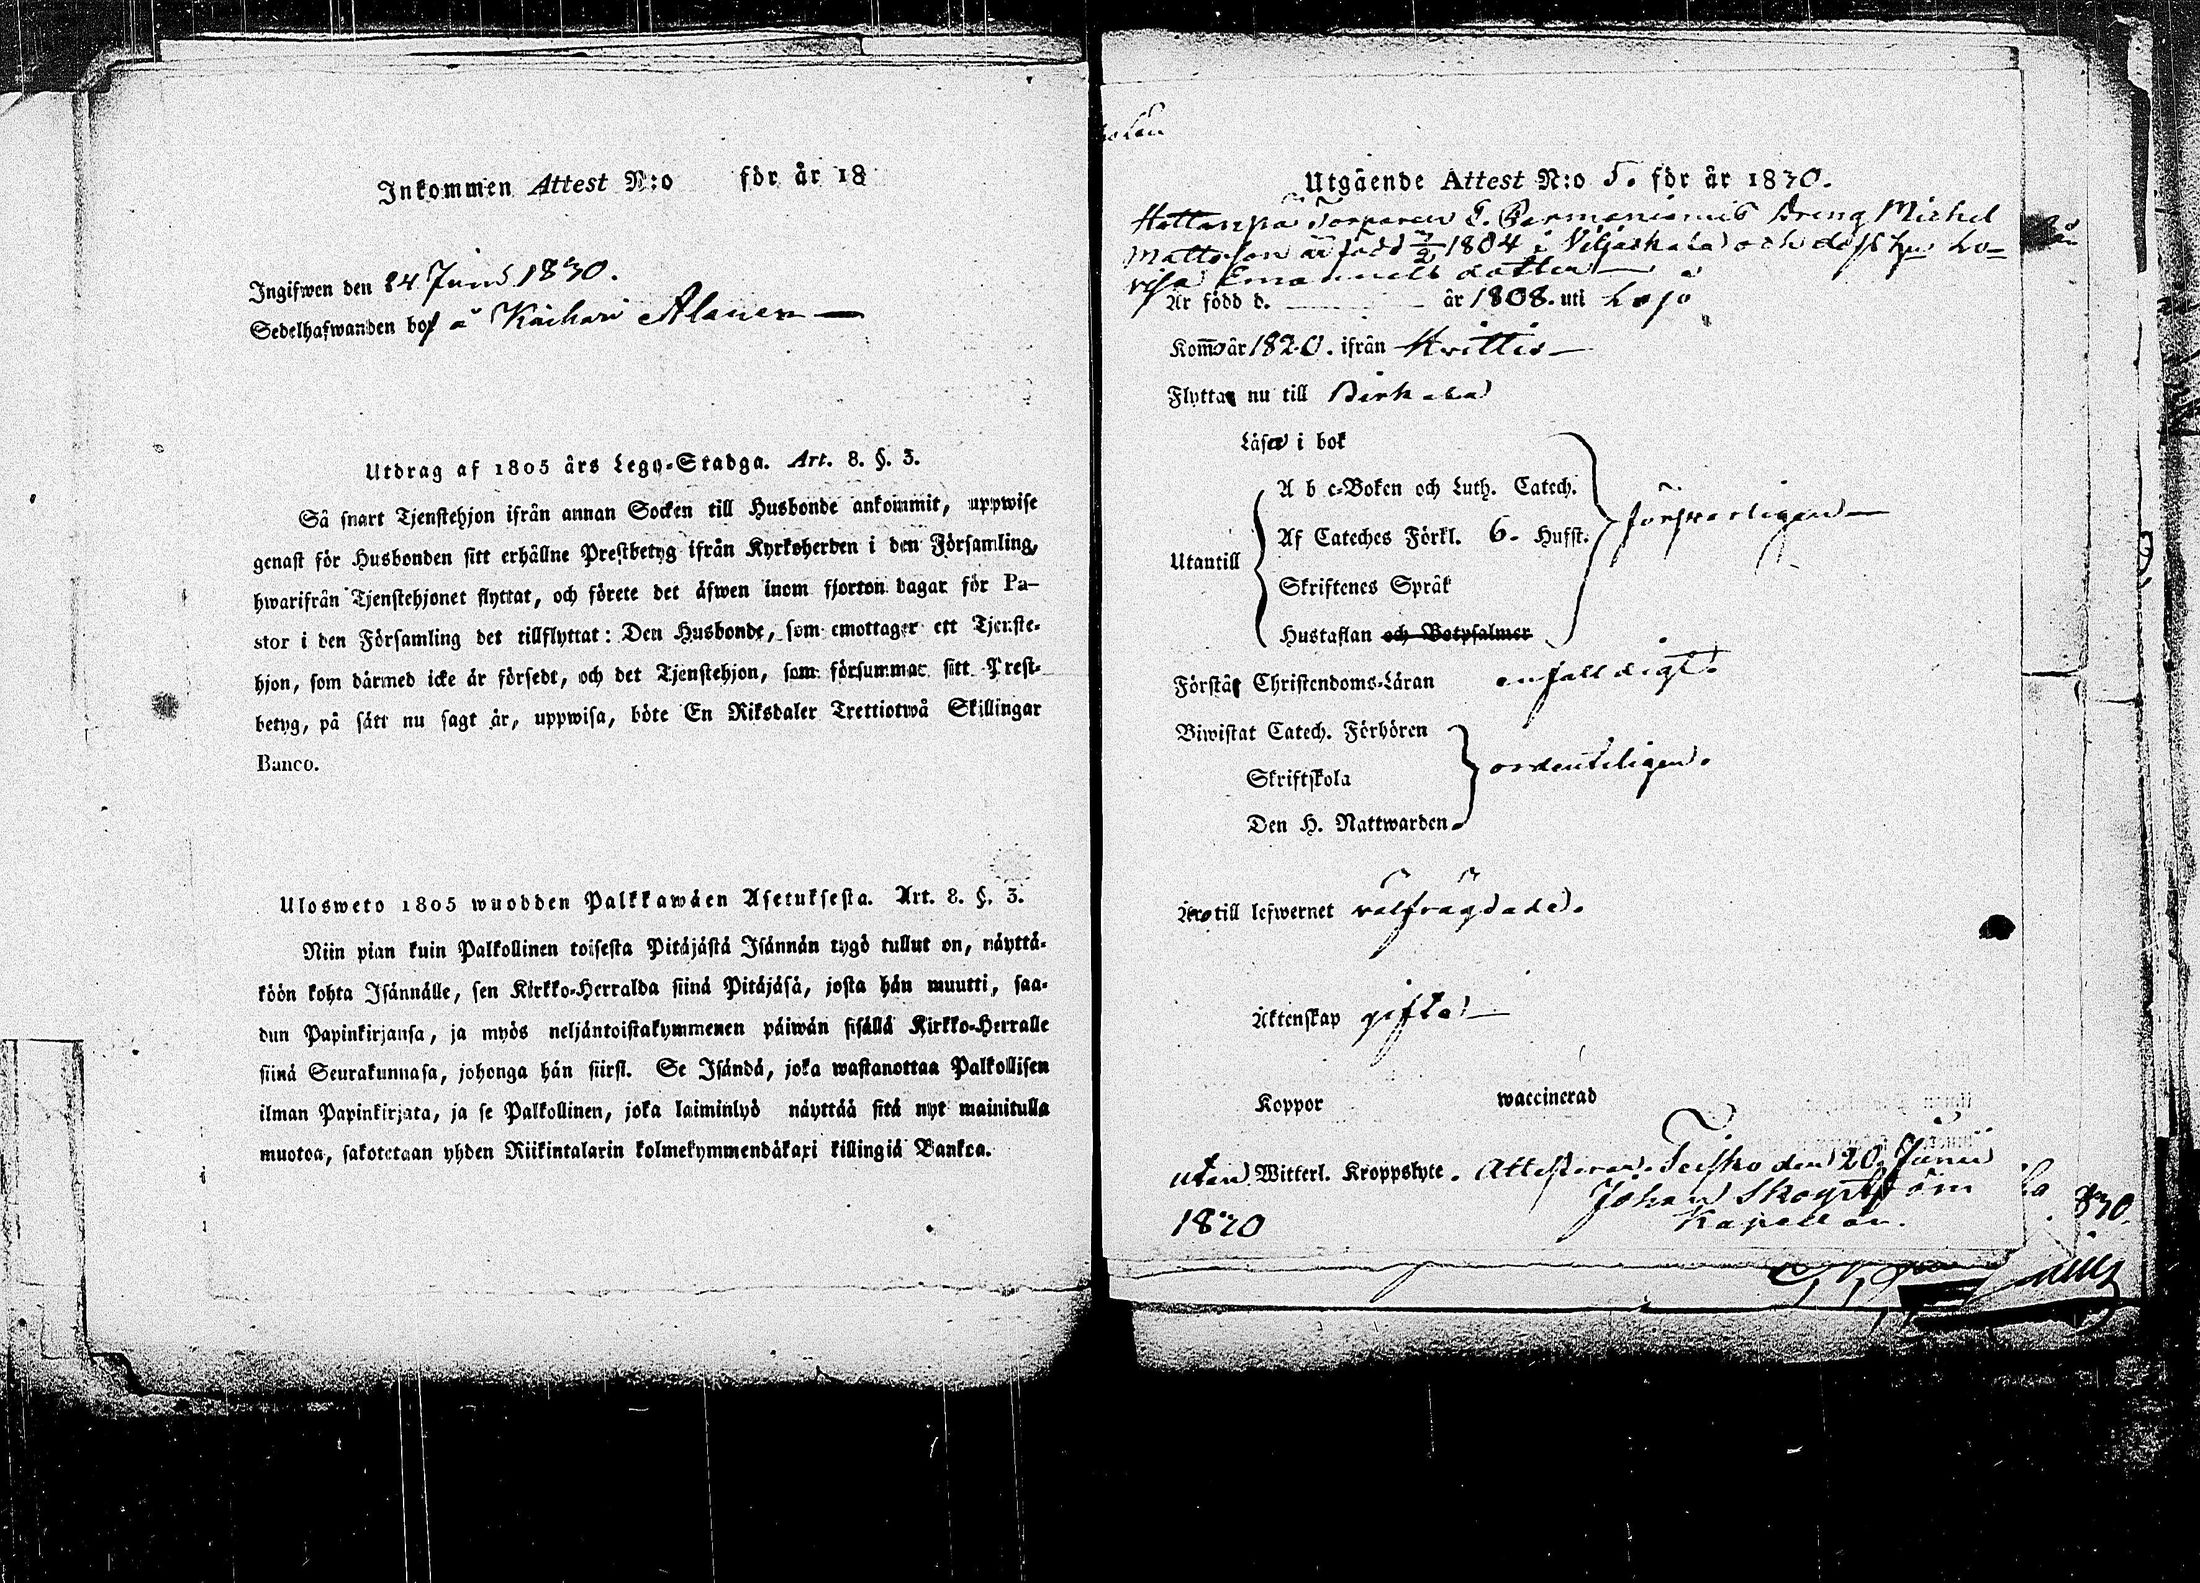 Inkommen Attest N:o för år 18
Ingifwen den 24 Junii 1830.
Sedelhafwanden bor å Kaihari Alanen
Utdrag af 1805 års Lego-Stadga. Art. 8. §. 3.
Så snart Tjenstehjon ifrån annan Socken till Husbonde ankommit, uppwise
genast för Husbonden sitt erhållne Prestbetyg ifrån Kyrkoherden i den Församling,
hwarifrån Tjenstehjonet flyttat, och förete det äfwen inom fjorton dagar för Pa-
stor i den Församling det tillflyttat: Den Husbonde, som emottager ett Tjenste-
hjon, som därmed icke är försedt, och det Tjenstehjon, som försummar sitt Prest-
betyg, på sätt nu sagt är, uppwisa, böte En Riksdaler Trettiotwå Skillingar
Banco.
Ulosweto 1805 wuodden Palkkawäen Asetuksesta. Art. 8. §. 3.
Niin pian kuin Palkollinen toisesta Pitäjästä Isännän tygö tullut on, näyttä-
köön kohta Isännälle, sen Kirkko-Herralda siinä Pitäjäsä, josta hän muutti, saa-
dun Papinkirjansa, ja myös neljäntoistakymmenen päiwän sisällä Kirkko-Herralle
siinä Seurakunnasa, johonga hän siirsi. Se Isändä, joka wastanottaa Palkollisen
ilman Papinkirjata, ja se Palkollinen, joka laiminlyö näyttää sitä nyt mainitulla
muotoa, sakotetaan yhden Riikintalarin kolmekymmendäkaxi killingiä Bankoa.
Utgående Attest N:o 5. för år 1830.
Torparen Dreng Michel
Mattsson är född 1804 i och dess hu Lo-
visa Emanuels dotter
Är född d. år 1808. uti Lojo
Komo år 1820. ifrån Hvittis
Flytta nu till Birkala
Läsa i bok
A b c-Boken och Luth. Catech.
Utantill Af Cateches Förkl. 6. Hufst. försvarligen
Skriftenes Språk
Hustaflan och Botpsalmer
Förstå Christendoms-Läran enfalldigt.
Biwistat Catech. Förhören
Skriftskola ordenteligen.
Den H. Nattwarden
Äro till lefwernet välfrägdade.
Äktenskap gifta
Koppor waccinerad
utan Witterl. Kroppslyte. Attesterar. Teisko den 20 Junii
1830 Johan Skogström
Kapellan.
830.